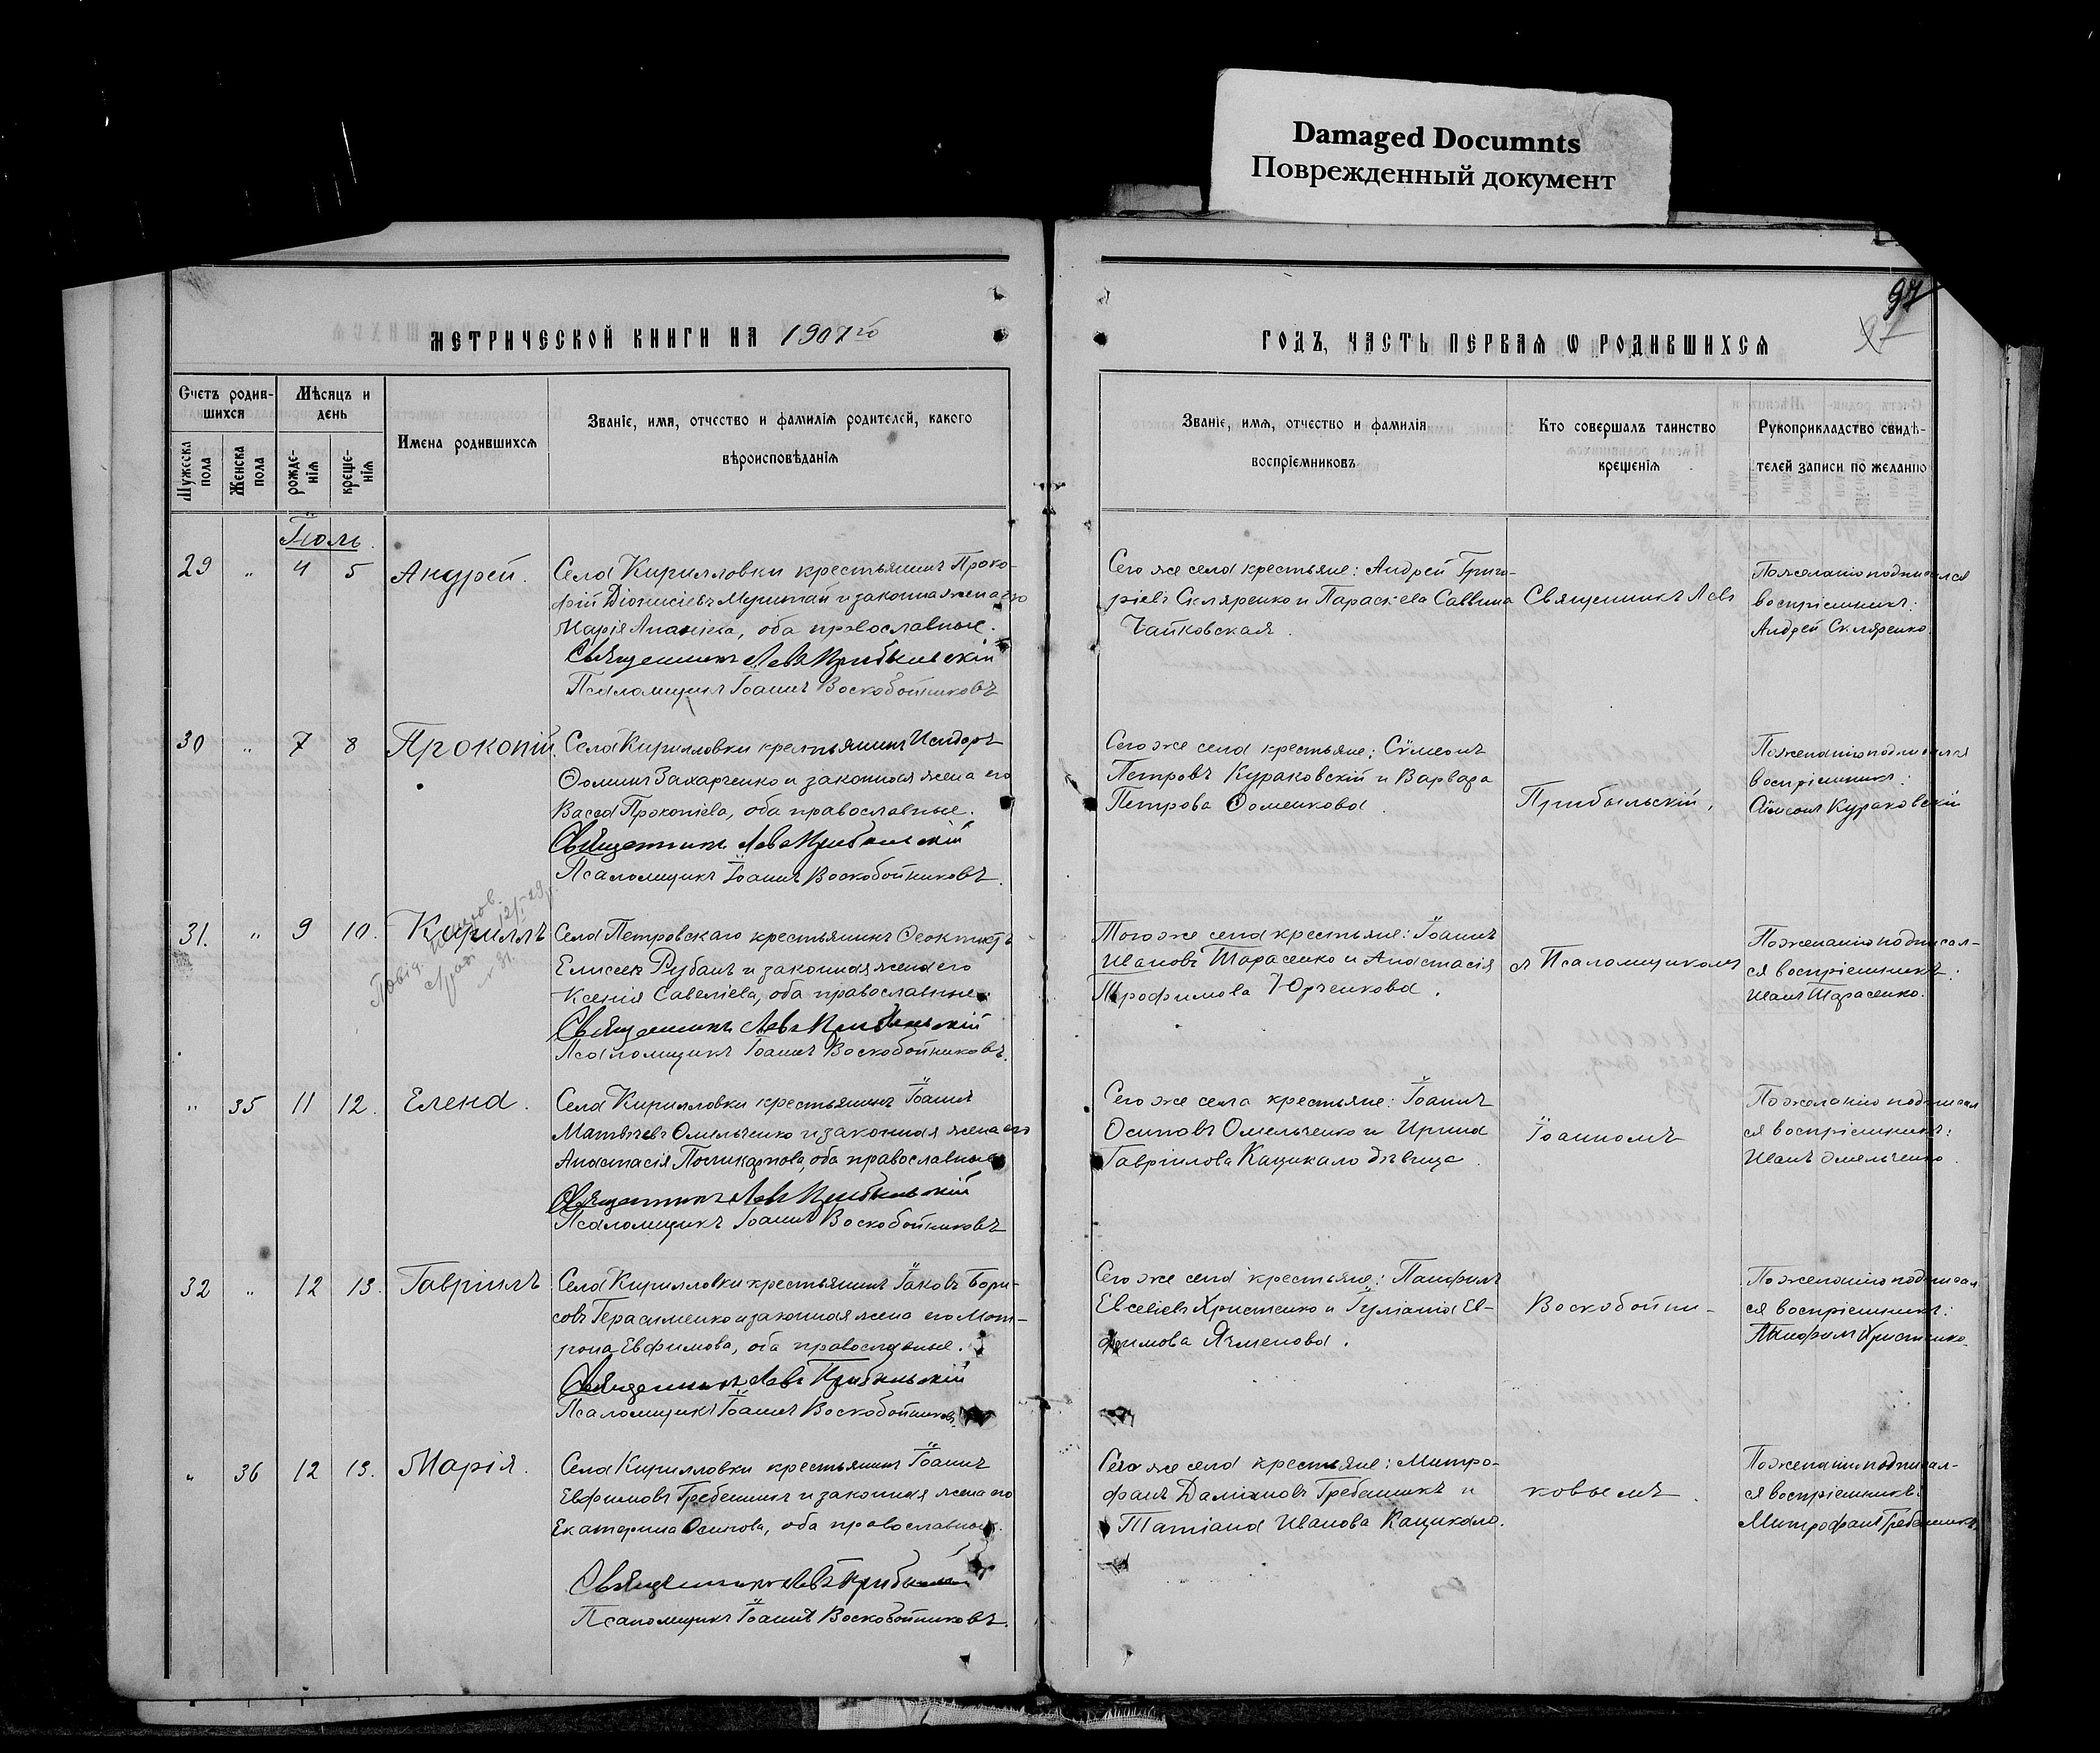 Damaged Documnts
Поврежденный документ
97
97
МЕТРИЧЕСКОЙ КНИГИ НА 1907го
ГОДЪ, ЧАСТЬ ПЕРВАЯ Ѡ РОДИВШИХСЯ
Счетъ родив-
шихся
Мужеска
пола
Женска
пола
Мѣсяцъ и
день
рожде-
нія
креще-
нія
Имена родившихся
Званіе, имя, отчество и фамилія родителей, какого
вѣроисповѣданія
Званіе, имя, отчество и фамилія
воспріємниковъ
Кто совершалъ таинство
крещенія
Рукоприкладство свидѣ-
телей записи по желанію
Іюль.
29 " 4 5 Андрей.
Села Кирилловки крестьянинъ Проко-
фій Діонисіевъ и законная жена его
Марія Ананіева, оба православные.
Священникъ Левъ Прибыльскій
Псаломщикъ Іоаннъ Воскобойниковъ
Сего же села крестьяне: Андрей Григо-
ріевъ Скляренко и Параскева Саввина
Чайковская.
Священникъ Левъ
По желанію подписался
воспріемникъ:
Андрей Скляренко.
30 " 7 8 Прокопій.
Села Кирилловки крестьянинъ Исидоръ
Ѳоминъ Захарченко и законная жена его
Васса Прокопіева, оба православные.
Священникъ Левъ Прибыльскій
Псаломщикъ Іоаннъ Воскобойниковъ.
Сего же села крестьяне: Сѵмеонъ
Петровъ Кураковскій и Варвара
Петрова Ѳоменкова.
Прибыльскій,
По желанію подписался
воспріемникъ:
Сѵмеонъ Кураковскій
31. " 9 10. Кириллъ
12/I-29р.
№ 31.
Села Петровскаго крестьянинъ Ѳеоктистъ
Елисеевъ Рубанъ и законная жена его
Ксенія Савеліева, оба православные.
Священникъ Левъ Прибыльскій
Псаломщикъ Іоаннъ Воскобойниковъ.
Того же села крестьяне: Іоаннъ
Ивановъ Тарасенко и Анастасія
Трофимова Юрченкова.
съ Псаломщикомъ
По желанію подписал-
ся воспріемникъ:
Иванъ Тарасенко.
" 35 11 12. Елена.
Села Кирилловки крестьянинъ Іоаннъ
Матвѣевъ Омельченко и законная жена его
Анастасія Поликарпова, оба православные
Священникъ Левъ Прибыльскій
Псаломщикъ Іоаннъ Воскобойниковъ
Сего же села крестьяне: Іоаннъ
Осиповъ Омельченко и Ирина
Гавріилова Кацикало дѣвица.
Іоанномъ
По желанію подписал
ся воспріемникъ:
Иванъ Омельченко.
32 " 12 13. Гавріилъ
Села Кирилловки крестьянинъ Іаковъ Бори-
совъ Герасименко и законная жена его Мот-
рона Евфимова, оба православные.
Священникъ Левъ Прибыльскій
Псаломщикъ Іоаннъ Воскобойниковъ.
Сего же села крестьяне: Панфилъ
Евсевіевъ Христенко и Іуліанія Ев-
фимова Ячменова.
Воскобойни-
По желанію подписал
ся воспріемникъ:
Панфилъ Христенко.
" 36 12 13. Марія.
Села Кирилловки крестьянинъ Іоаннъ
Евфимовъ Гребенникъ и законная жена его
Екатерина Осипова, оба православные.
Священникъ Левъ Прибыльскій
Псаломщикъ Іоаннъ Воскобойниковъ.
Сего же села крестьяне: Митро-
фанъ Даміановъ Гребенникъ и
Татіана Иванова Кацикало.
ковымъ.
По желанію подписал-
ся воспріемникъ:
Митрофанъ Гребенникъ.